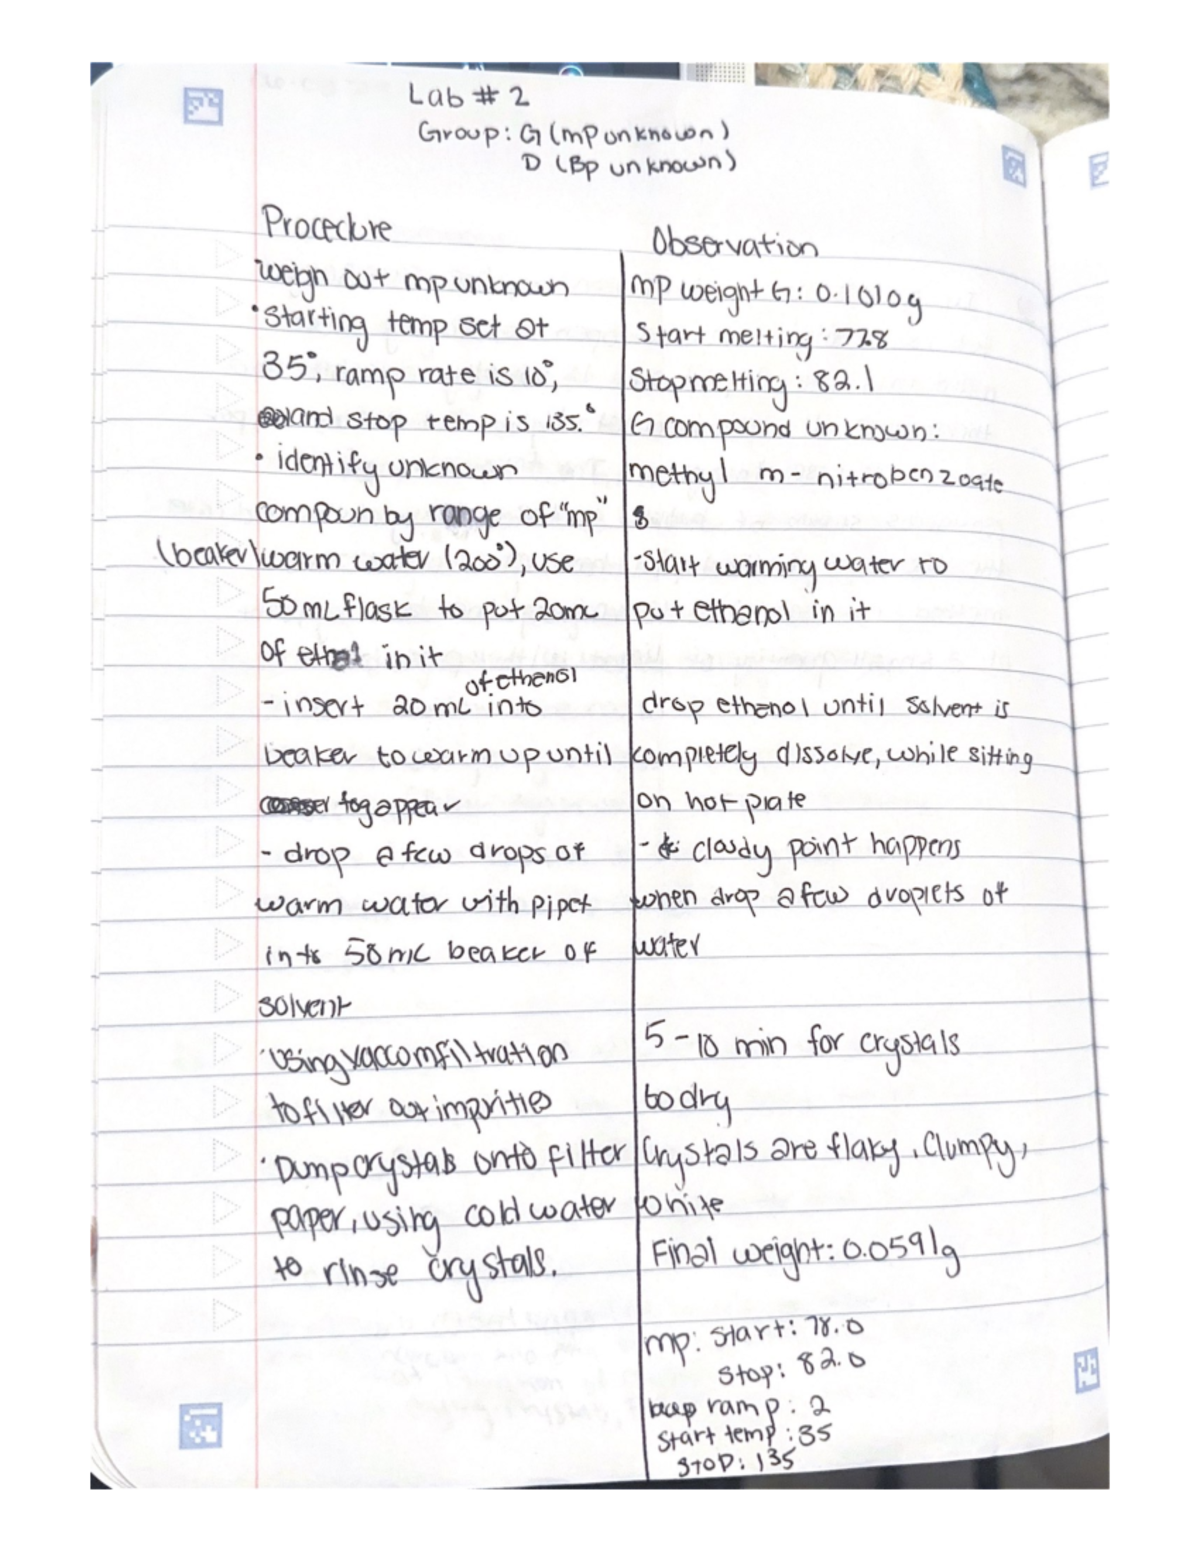 Lab # 2
Group: G (mp unknown)
D (Bp unknown)
Procedure
weigh out mp unknown
• Starting temp set at
35°, ramp rate is 10°,
and stop temp is 135.°
• identify unknown
compoun by range of "mp"
(beaker) warm water (200°), use
50 mL flask to put 20mL
of in it
of ethanol
- insert 20 mL into
beaker to warm up until
fog appear
- drop a few drops of
warm water with pipet
into 50 mL beaker of
solvent
• Using vaccom filtration
to filter out imprities
• Dump crystals onto filter
paper, using cold water
to rinse crystals.
Observation
mp weight G: 0.1010g
Start melting: 77.8
Stop melting: 82.1
G compound unknown:
methyl m-nitrobenzoate
-start warming water to
put ethanol in it
drop ethanol until solvent is
completely dissolve, while sitting
on hot plate
- cloudy point happens
when drop a few droplets of
water
5-10 min for crystals
to dry
Crystals are flaky, Clumpy,
white
Final weight: 0.0591g
mp: start: 78.0
stop: 82.0
ramp: 2
start temp: 35
STOP: 135